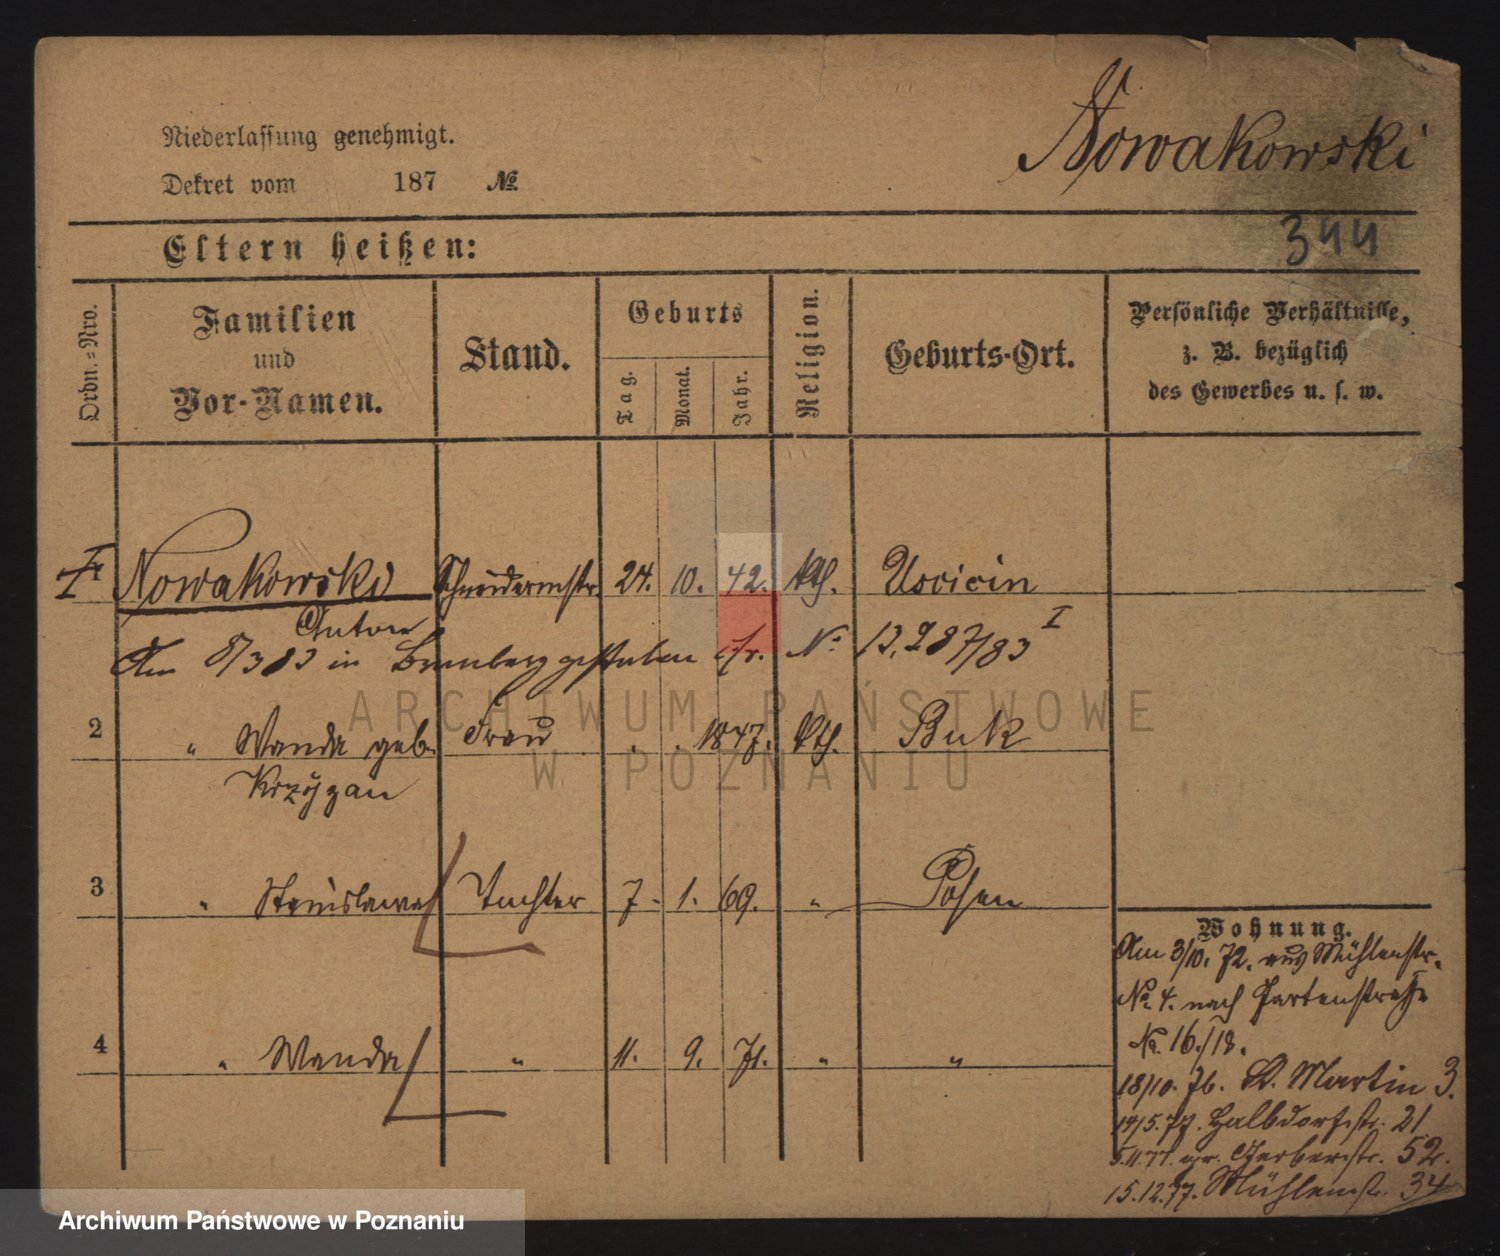 Nowakowski
Niederlassung genehmigt.
Dekret vom 187 №
344
Eltern heißen:
Ordn.-Nro.
Familien
und
Vor-Namen.
Stand.
Geburts
Tag.
Monat.
Jahr.
Religion.
Geburts-Ort.
Persönliche Verhältnisse,
z. B. bezüglich
des Gewerbes u. s. w.
Nowakowski Schneidermstr. 24. 10. 42. kth. Uscicin
Anton
Am 8/3 83 in Bromberg gestorben cfr. No 13,287/83 I
2 " Wanda geb. Frau . . 1847. kth. Buk
Krzyzan
3 " Stanislawa Tochter 7. 1. 69. " Posen
4 " Wanda " 11. 9. 71. " "
Wohnung.
Am 3/10. 72. aus Mühlenstr.
No. 4. nach Gartenstraße
No. 16./18.
18/10. 76. St. Martin 3.
14/5. 77. Halbdorfstr. 21
5.11.77. Gerberstr. 52.
15.12.77. Mühlenstr. 34
ARCHIWUM PAŃSTWOWE
W POZNANIU
Archiwum Państwowe w Poznaniu